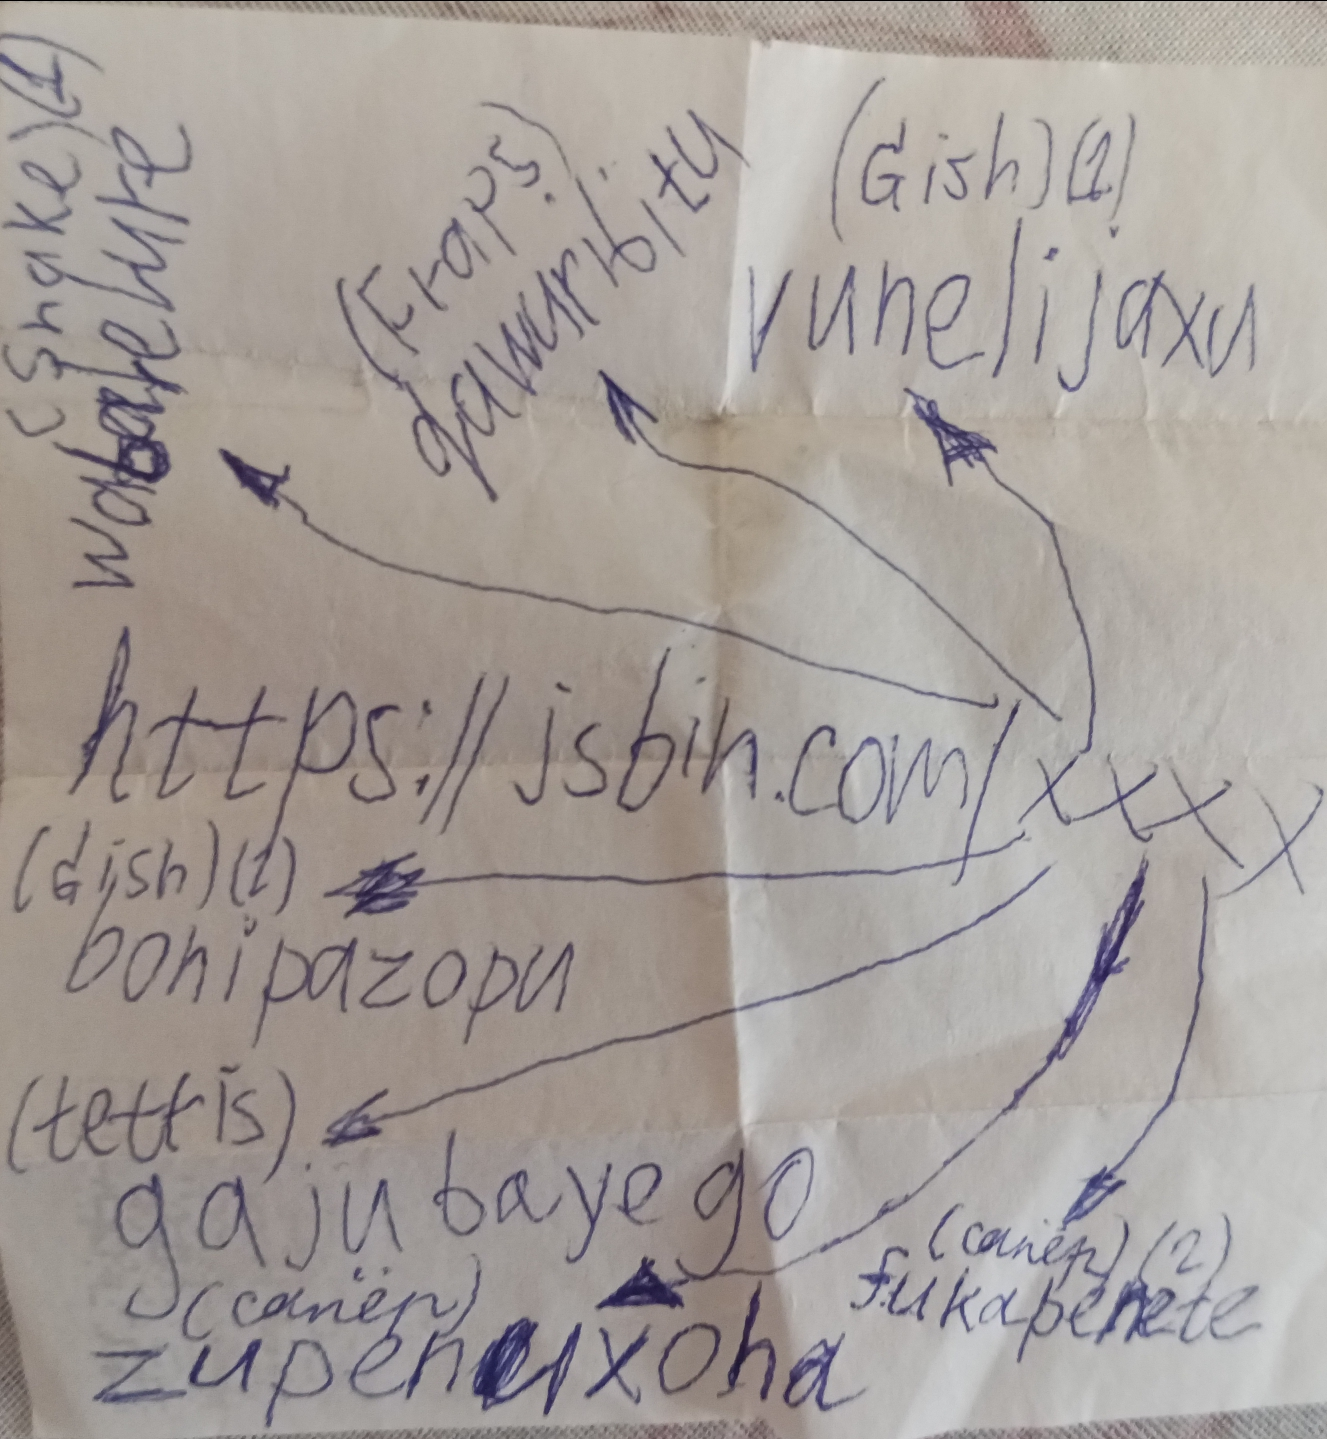 (Snake)(1)
(Fraps)
dawuribitu
(Gish)(2)
vunelijaxu
https://jsbin.com/xxxx
(Gish)(1)
bonipazopu
(tetris)
gajubayego
(сапёр)
zupenuxoha
(сапёр)(2)
fukapenete